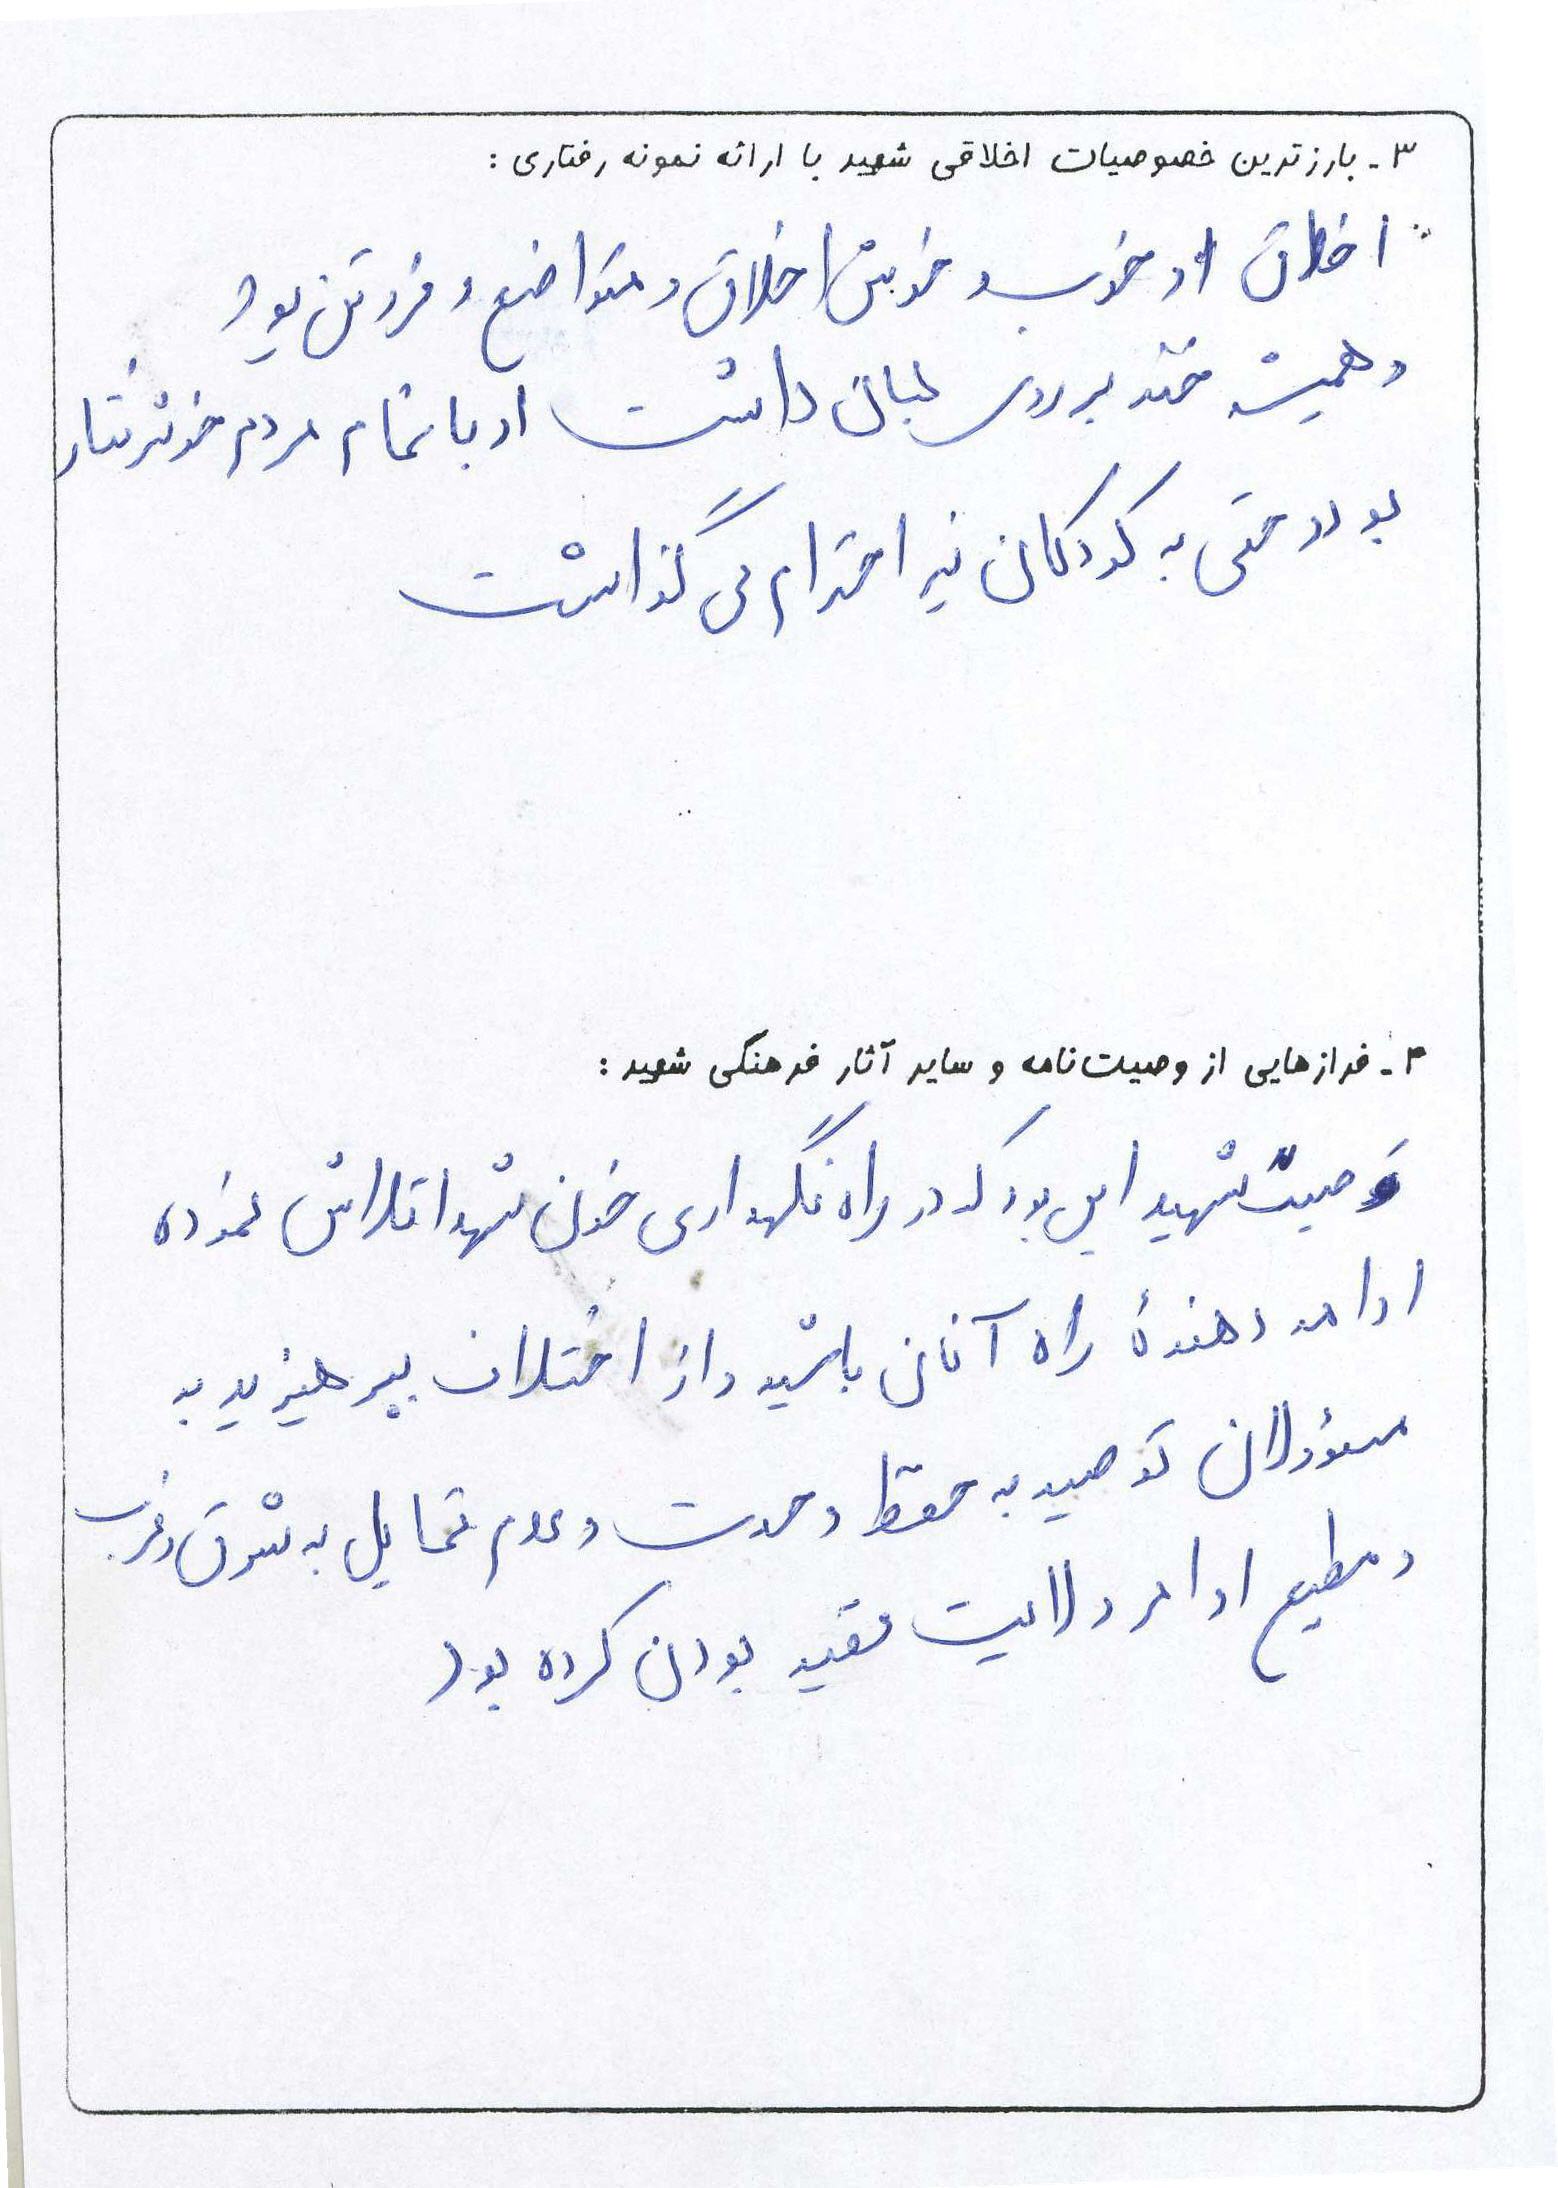 ۳- بارزترین خصوصیات اخلاقی شهید با ارائه نمونه رفتاری :
اخلاق او خوب و خوش اخلاق و متواضع و فروتن بود
و همیشه خنده بر روی لبان داشت او با تمام مردم خوشرفتار
بود و حتی به کودکان نیز احترام می گذاشت
۴- فرازهایی از وصیت‌نامه و سایر آثار فرهنگی شهید :
وصیت شهید این بود که در راه نگهداری خون شهدا تلاش نموده
ادامه دهندهٔ راه آنان باشید و از اختلاف بپرهیزید به
مسؤولان توصیه به حفظ وحدت و عدم تمایل به شرق و غرب
و مطیع اوامر ولایت فقیه بودن کرده بود